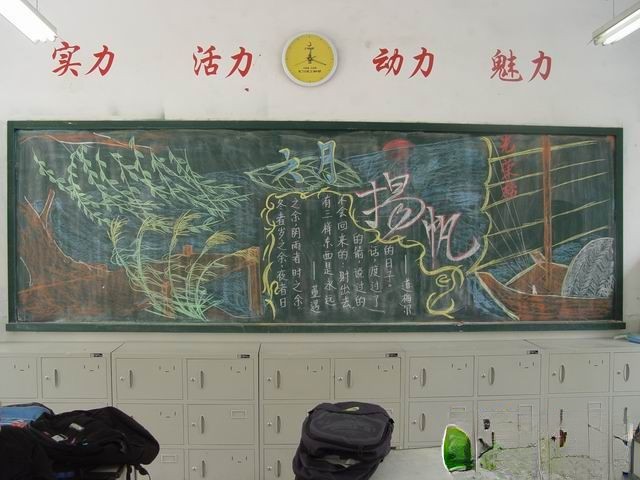 实力 活力 动力 魅力
六月
扬帆
光荣榜
冬者岁之余,夜者日
之余,阴雨者时之余
——董遇
有三样东西是永远
不会回来的:射出去
的箭,说过的
话,度过了
的日子。